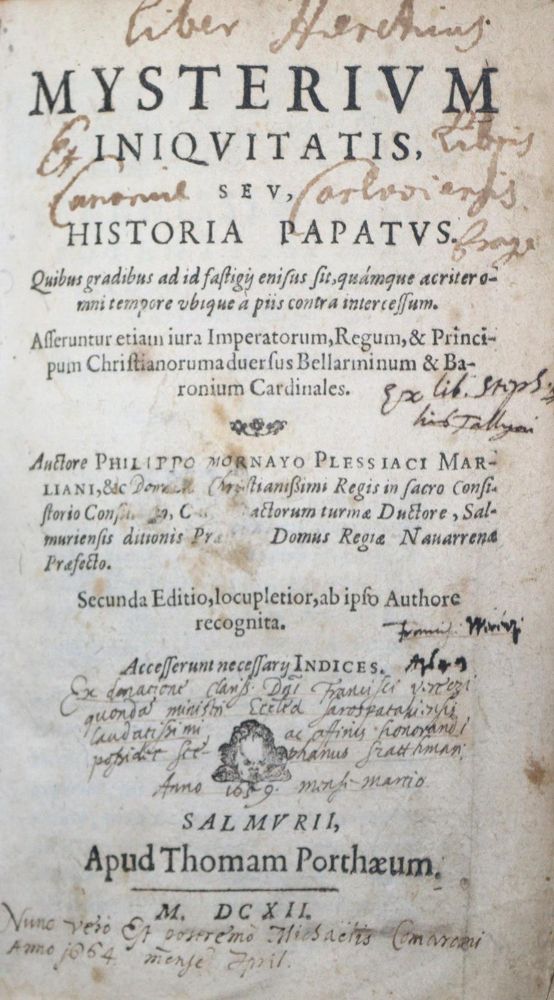 Liber Hereticus
MYSTERIVM
Ex INIQVITATIS, Libris
Canoniae SEV,
HISTORIA PAPATVS.
Quibus gradibus ad id fastigij enisus sit, quámque acriter o-
mni tempore vbique à piis contra intercessum.
Asseruntur etiam iura Imperatorum, Regum, & Princi-
pum Christianorum aduersus Bellarminum & Ba-
ronium Cardinales.
Ex lib. Steph
Auctore PHILIPPO MORNAYO PLESSIACI MAR-
LIANI, &c Christianißimi Regis in sacro Consi-
storio actorum turmæ Ductore, Sal-
muriensis ditionis Domus Regiæ Nauarrenæ
Præfecto.
Secunda Editio, locupletior, ab ipso Authore
recognita.
Accesserunt necessary INDICES.
Ex donatione Clariss. Dni Francisci
quondã ministri Eccleã
laudatissimi ac affinis honorandi
possidet Ste- phanus
Anno 1659. mense martio
SALMVRII,
Apud Thomam Porthæum.
M. DCXII.
Nunc vero Et postremo Michaëlis Comaromi
Anno 1664 mense April.